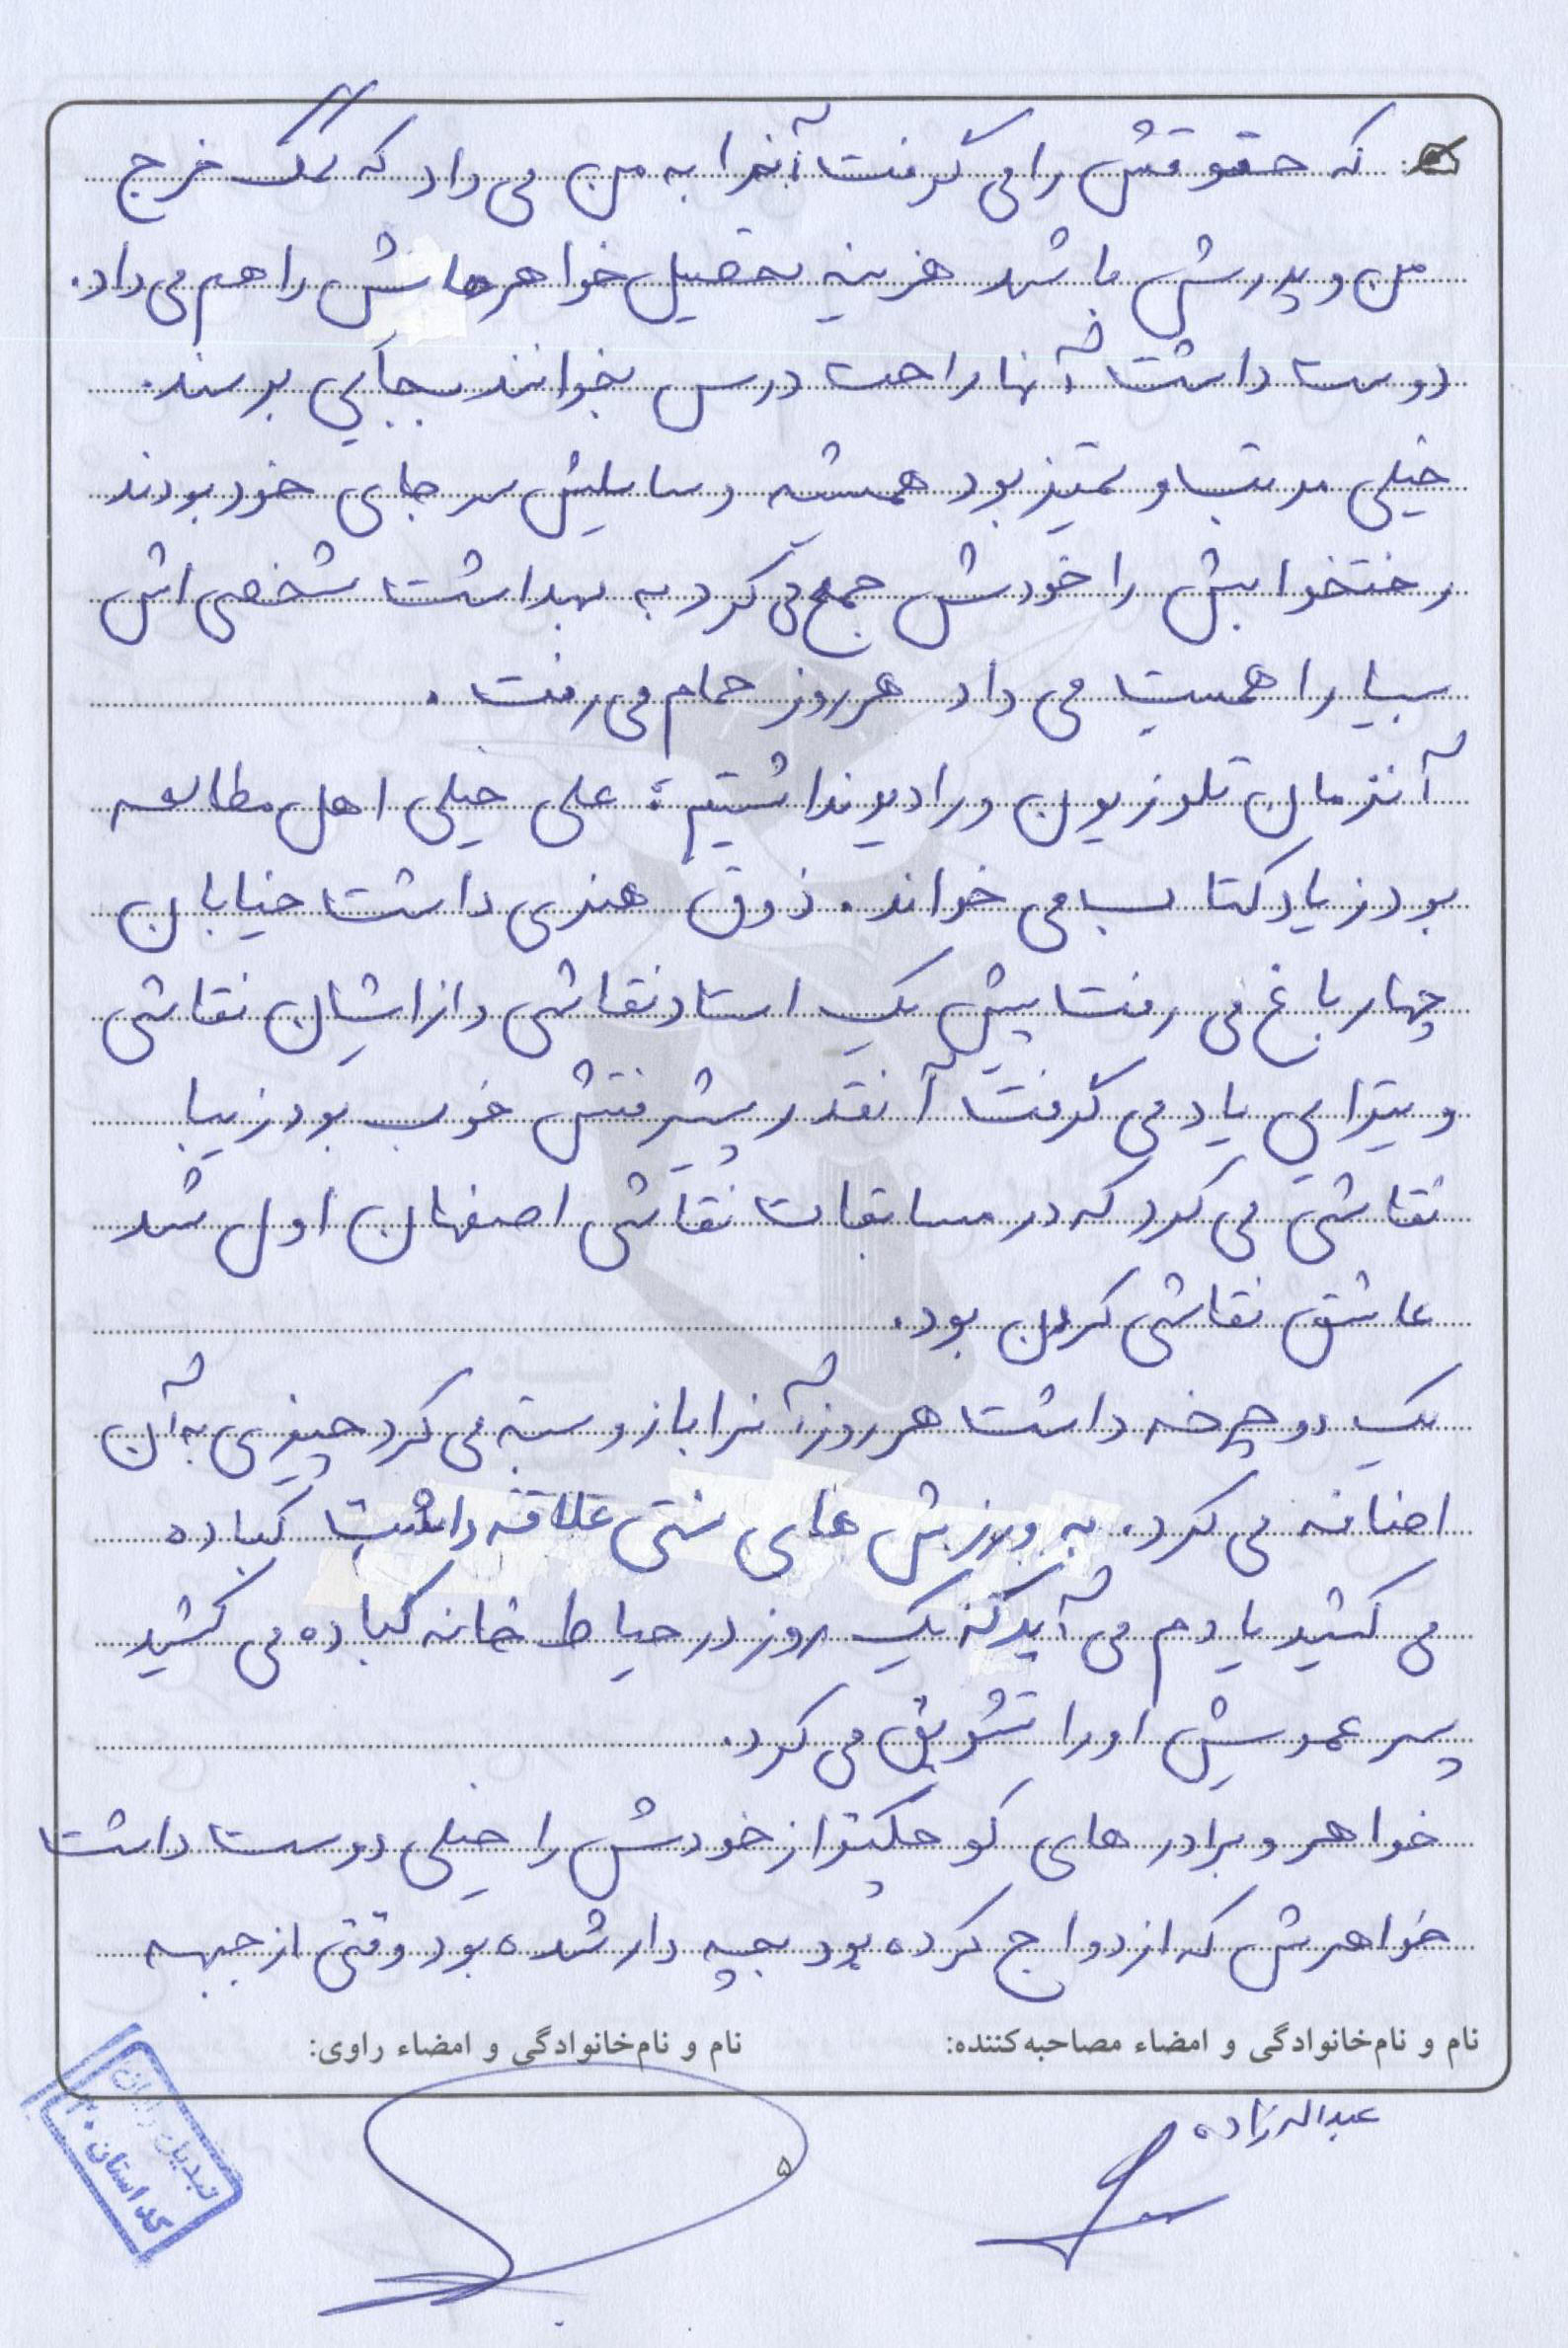 که حقوقش را می گرفت آنرا به من می داد که کمک خرج
من و پدرش باشد هزینه تحصیل خواهرهایش را هم می داد.
دوست داشت آنها راحت درس بخوانند بجایی برسند.
خیلی مرتب و تمیز بود همیشه وسایلش سر جای خود بودند
رختخوابش را خودش جمع می کرد به بهداشت شخصی اش
بسیار اهمیت می داد هر روز حمام می رفت.
آنزمان تلوزیون و رادیو نداشتیم. علی خیلی اهل مطالعه
بود زیاد کتاب می خواند. ذوق هنری داشت خیابان
چهار باغ می رفت پیش یک استاد نقاشی و از ایشان نقاشی
ویترایی یاد می گرفت آنقدر پیشرفتش خوب بود زیبا
نقاشی می کرد که در مسابقات نقاشی اصفهان اول شد
عاشق نقاشی کردن بود.
یک دوچرخه داشت هر روز آنرا باز و بسته می کرد چیزی به آن
اضافه می کرد. به ورزش های سنتی علاقه داشت کباده
می کشید یادم می آید که یک روز در حیاط خانه کباده می کشید
پسر عمویش او را تشویق می کرد.
خواهر و برادر های کوچکتر از خودش را خیلی دوست داشت
خواهرش که ازدواج کرده بود بچه دار شده بود وقتی از جبهه
نام و نام‌خانوادگی و امضاء مصاحبه‌کننده:
نام و نام‌خانوادگی و امضاء راوی:
عبداله زاده
۵
کد استان ۲۰